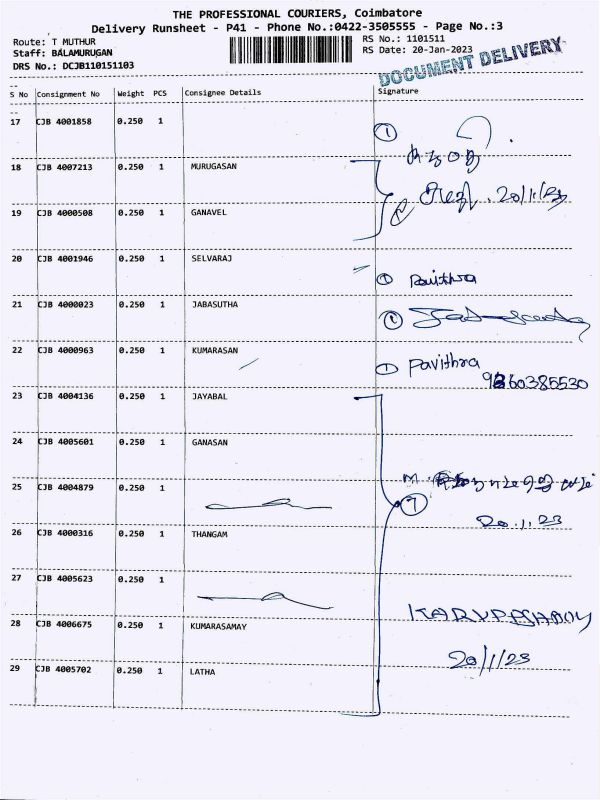 THE PROFESSIONAL COURIERS, Coimbatore
Delivery Runsheet - P41 - Phone No.:0422-3505555 - Page No.:3
Route: T MUTHUR
RS No.: 1101511
Staff: BALAMURUGAN
RS Date: 20-Jan-2023
DRS No.: DCJB110151103
DOCUMENT DELIVERY
S No Consignment No Weight PCS Consignee Details Signature
17 CJB 4001858 0.250 1
①
18 CJB 4007213 0.250 1 MURUGASAN
19 CJB 4000508 0.250 1 GANAVEL
20 CJB 4001946 0.250 1 SELVARAJ
① Pavithra
21 CJB 4000023 0.250 1 JABASUTHA
①
22 CJB 4000963 0.250 1 KUMARASAN
① Pavithra
23 CJB 4004136 0.250 1 JAYABAL
24 CJB 4005601 0.250 1 GANASAN
25 CJB 4004879 0.250 1
⑦
20.1.23
26 CJB 4000316 0.250 1 THANGAM
27 CJB 4005623 0.250 1
28 CJB 4006675 0.250 1 KUMARASAMAY
20/1/23
29 CJB 4005702 0.250 1 LATHA